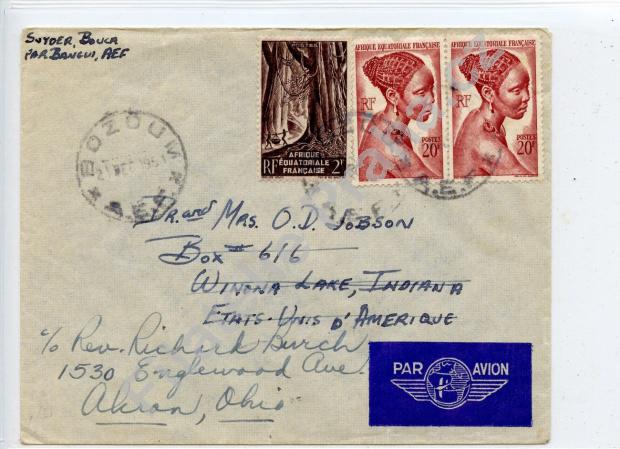 SNYDER, BOUCA
PAR BANGUI, AEF
POSTES
RF AFRIQUE ÉQUATORIALE FRANÇAISE 2F
AFRIQUE ÉQUATORIALE FRANÇAISE
RF
POSTES
20F
AFRIQUE ÉQUATORIALE FRANÇAISE
RF
POSTES
20F
BOZOUM
1951
A.E.F.
A.E.F.
DR. and MRS. O.D. JOBSON
BOX # 616
WINONA LAKE, INDIANA
ETATS-UNIS D'AMERIQUE
c/o Rev. Richard Burch
1530 Englewood Ave
Akron, Ohio
PAR AVION